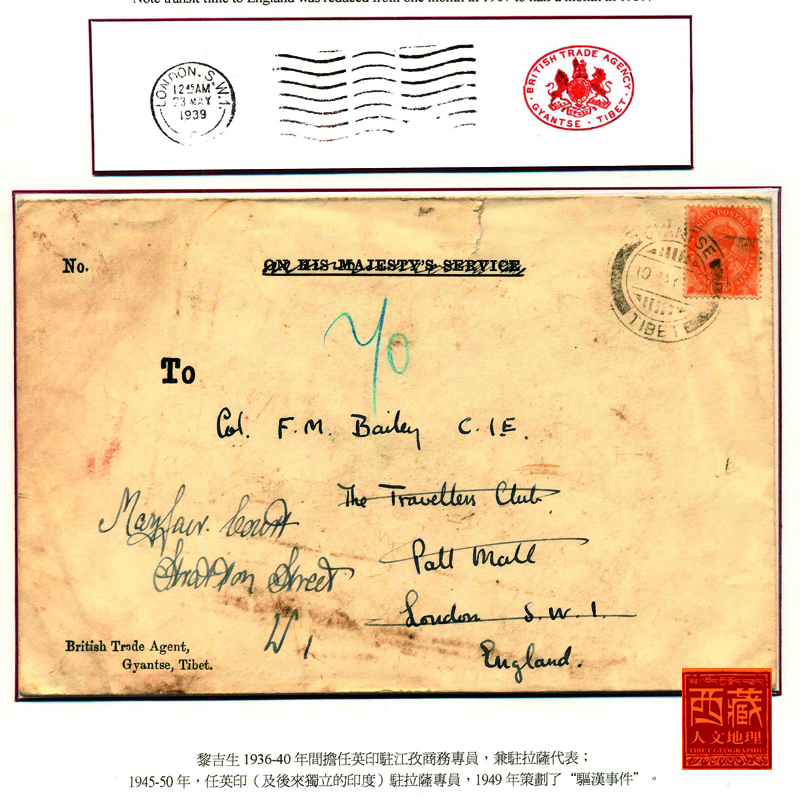 Note transit time to England was reduced from one month in 1907 to half a month in 1939.
LONDON. S.W.1.
12 45 AM
23 MAY
1939
BRITISH TRADE AGENCY
GYANTSE · TIBET
No.
ON HIS MAJESTY'S SERVICE
INDIA POSTAGE
GYANTSE
10 MAY
TIBET
To
Col. F. M. Bailey C.I.E.
The Travellers Club
Pall Mall
London S.W.1.
England.
Mayfair Court
Stratton Street
W1
British Trade Agent,
Gyantse, Tibet.
西藏
人文地理
TIBET GEOGRAPHIC
黎吉生 1936-40 年間擔任英印駐江孜商務專員，兼駐拉薩代表；
1945-50 年，任英印（及後來獨立的印度）駐拉薩專員，1949 年策劃了“驅漢事件”。